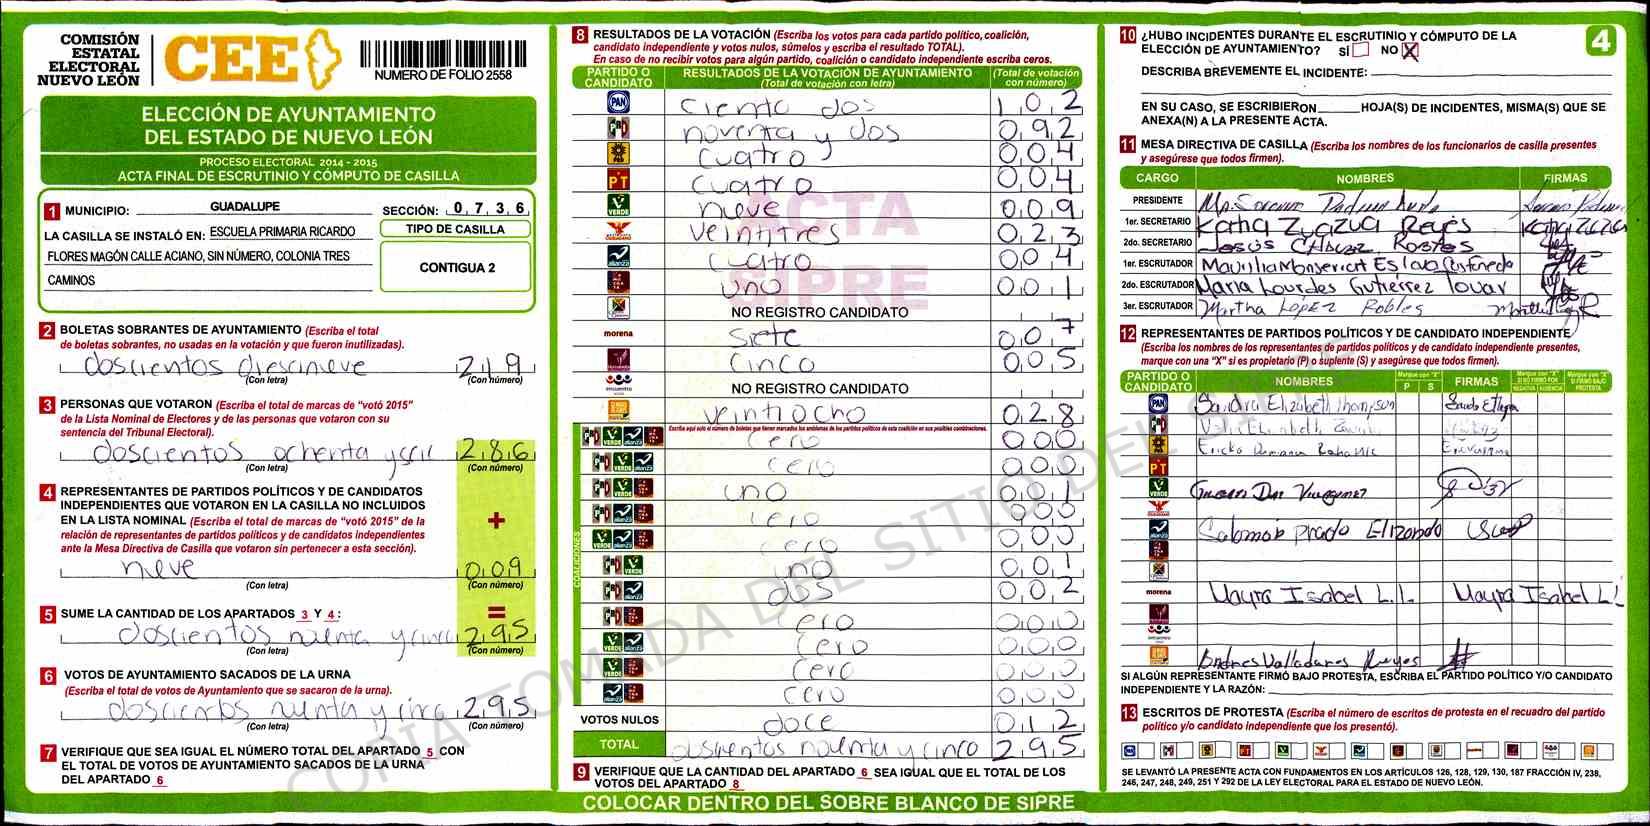 COMISIÓN
ESTATAL
ELECTORAL
NUEVO LEÓN
CEE
NUMERO DE FOLIO 2558
ELECCIÓN DE AYUNTAMIENTO
DEL ESTADO DE NUEVO LEÓN
PROCESO ELECTORAL 2014 - 2015
ACTA FINAL DE ESCRUTINIO Y CÓMPUTO DE CASILLA
1 MUNICIPIO: GUADALUPE SECCIÓN: 0,7,3,6
LA CASILLA SE INSTALÓ EN: ESCUELA PRIMARIA RICARDO
FLORES MAGÓN CALLE ACIANO, SIN NÚMERO, COLONIA TRES
CAMINOS
TIPO DE CASILLA
CONTIGUA 2
2 BOLETAS SOBRANTES DE AYUNTAMIENTO (Escriba el total
de boletas sobrantes, no usadas en la votación y que fueron inutilizadas).
doscientos diescineve 2,1,9
(Con letra) (Con número)
3 PERSONAS QUE VOTARON (Escriba el total de marcas de “votó 2015”
de la Lista Nominal de Electores y de las personas que votaron con su
sentencia del Tribunal Electoral).
doscientos ochenta y seis 2,8,6
(Con letra) (Con número)
4 REPRESENTANTES DE PARTIDOS POLÍTICOS Y DE CANDIDATOS
INDEPENDIENTES QUE VOTARON EN LA CASILLA NO INCLUIDOS
EN LA LISTA NOMINAL (Escriba el total de marcas de “votó 2015” de la
relación de representantes de partidos políticos y de candidatos independientes
ante la Mesa Directiva de Casilla que votaron sin pertenecer a esta sección).
+
neve 0,0,9
(Con letra) (Con número)
5 SUME LA CANTIDAD DE LOS APARTADOS 3 Y 4 :
=
doscientos nuenta y cinco 2,9,5
(Con letra) (Con número)
6 VOTOS DE AYUNTAMIENTO SACADOS DE LA URNA
(Escriba el total de votos de Ayuntamiento que se sacaron de la urna).
doscientos nuenta y cinco 2,9,5
(Con letra) (Con número)
7 VERIFIQUE QUE SEA IGUAL EL NÚMERO TOTAL DEL APARTADO 5 CON
EL TOTAL DE VOTOS DE AYUNTAMIENTO SACADOS DE LA URNA
DEL APARTADO 6
8 RESULTADOS DE LA VOTACIÓN (Escriba los votos para cada partido político, coalición,
candidato independiente y votos nulos, súmelos y escriba el resultado TOTAL).
En caso de no recibir votos para algún partido, coalición o candidato independiente escriba ceros.
PARTIDO O CANDIDATO RESULTADOS DE LA VOTACIÓN DE AYUNTAMIENTO (Total de votación con letra) (Total de votación con número)
PAN ciento dos 1,0,2
PRI noventa y dos 0,9,2
PRD cuatro 0,0,4
PT cuatro 0,0,4
VERDE nueve 0,0,9
veintitres 0,2,3
alianza cuatro 0,0,4
uno 0,0,1
NO REGISTRO CANDIDATO
morena siete 0,0,7
cinco 0,0,5
encuentro NO REGISTRO CANDIDATO
veintiocho 0,2,8
Escriba aquí solo el número de boletas que tienen marcados los emblemas de los partidos políticos de esta coalición en sus posibles combinaciones.
COALICIONES
VERDE alianza cero 0,0,0
VERDE alianza cero 0,0,0
VERDE uno 0,0,1
alianza cero 0,0,0
VERDE alianza cero 0,0,0
VERDE uno 0,0,1
alianza dos 0,0,2
ero 0,0,0
VERDE alianza cero 0,0,0
VERDE cero 0,0,0
alianza cero 0,0,0
VOTOS NULOS doce 0,1,2
TOTAL doscientos nouenta y cinco 2,9,5
9 VERIFIQUE QUE LA CANTIDAD DEL APARTADO 6 SEA IGUAL QUE EL TOTAL DE LOS
VOTOS DEL APARTADO 8
COLOCAR DENTRO DEL SOBRE BLANCO DE SIPRE
ACTA
SIPRE
COPIA TOMADA DEL SITIO DEL SIPRE
4
10 ¿HUBO INCIDENTES DURANTE EL ESCRUTINIO Y CÓMPUTO DE LA
ELECCIÓN DE AYUNTAMIENTO? SÍ NO X
DESCRIBA BREVEMENTE EL INCIDENTE:
EN SU CASO, SE ESCRIBIERON HOJA(S) DE INCIDENTES, MISMA(S) QUE SE
ANEXA(N) A LA PRESENTE ACTA.
11 MESA DIRECTIVA DE CASILLA (Escriba los nombres de los funcionarios de casilla presentes
y asegúrese que todos firmen).
CARGO NOMBRES FIRMAS
PRESIDENTE Ma. Socorro
1er. SECRETARIO Katha Zuazua Reyes Katha
2do. SECRETARIO Jesús Chavez Robles
1er. ESCRUTADOR Mavilia Monserrat Eslava Castañeda
2do. ESCRUTADOR Maria Lourdes Gutierrez Tovar
3er. ESCRUTADOR Martha López Robles
12 REPRESENTANTES DE PARTIDOS POLÍTICOS Y DE CANDIDATO INDEPENDIENTE
(Escriba los nombres de los representantes de partidos políticos y de candidato independiente presentes,
marque con una “X” si es propietario (P) o suplente (S) y asegúrese que todos firmen).
PARTIDO O CANDIDATO NOMBRES Marque con “X” P S FIRMAS Marque con “X” SI NO FIRMÓ POR NEGATIVA AUSENCIA Marque con “X” SI FIRMÓ BAJO PROTESTA
PAN Sandra Elizabeth Thompson
Elizabeth
PRD Ericka
PT
VERDE
alianza Salomón Prado Elizondo
morena Mayra Isabel L.L. Mayra Isabel L.L
encuentro
Andres Valladares Reyes
SI ALGÚN REPRESENTANTE FIRMÓ BAJO PROTESTA, ESCRIBA EL PARTIDO POLÍTICO Y/O CANDIDATO
INDEPENDIENTE Y LA RAZÓN:
13 ESCRITOS DE PROTESTA (Escriba el número de escritos de protesta en el recuadro del partido
político y/o candidato independiente que los presentó).
SE LEVANTÓ LA PRESENTE ACTA CON FUNDAMENTOS EN LOS ARTÍCULOS 126, 128, 129, 130, 187 FRACCIÓN IV, 238,
246, 247, 248, 249, 251 Y 292 DE LA LEY ELECTORAL PARA EL ESTADO DE NUEVO LEÓN.